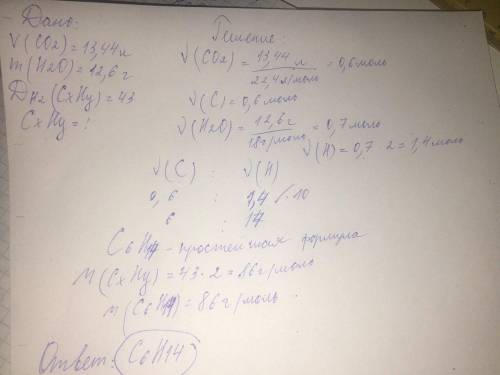 Дано:
V(CO2) = 13,44 л
m(H2O) = 12,6 г
DH2(CxHy) = 43
CxHy = ?
Решение:
V(CO2) = 13,44 л / 22,4 л/моль = 0,6 моль
V(C) = 0,6 моль
V(H2O) = 12,6 г / 18 г/моль = 0,7 моль
V(H) = 0,7 · 2 = 1,4 моль
V(C) : V(H)
0,6 : 1,4 /·10
6 : 14
C6H14 - простейшая формула
M(CxHy) = 43·2 = 86 г/моль
M(C6H14) = 86 г/моль.
Ответ: C6H14